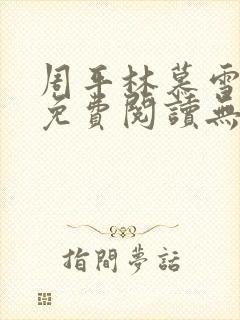 周平林慕雪
免費閱讀無
指間夢話